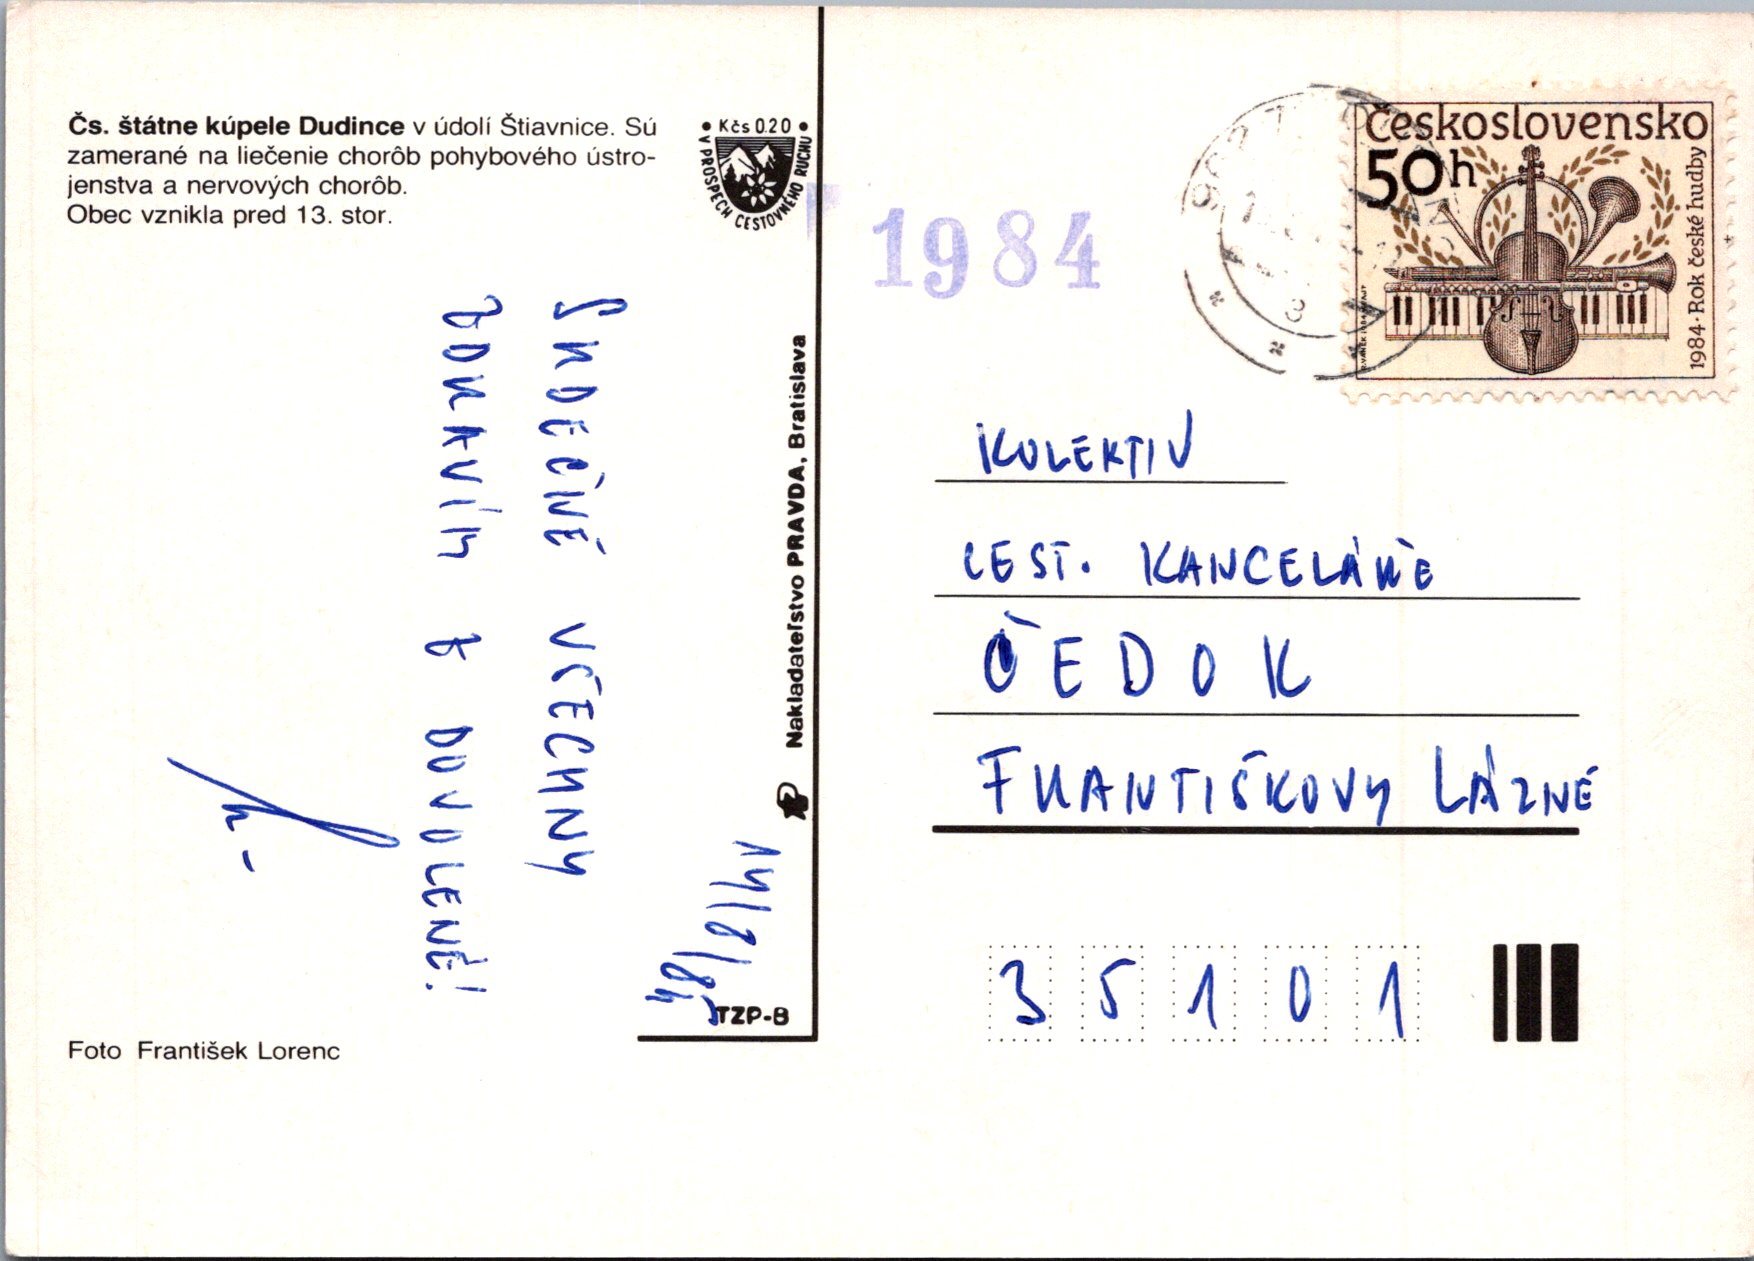 Čs. štátne kúpele Dudince v údolí Štiavnice. Sú
zamerané na liečenie chorôb pohybového ústro-
jenstva a nervových chorôb.
Obec vznikla pred 13. stor.
Kčs 0.20
V PROSPECH CESTOVNÉHO RUCHU
1984
Československo
50h
1984 · Rok české hudby
SRDEČNĚ VŠECHNY
ZDRAVÍM Z DOVOLENÉ!
14/8/84
Nakladateľstvo PRAVDA, Bratislava
TZP-B
Foto František Lorenc
KOLEKTIV
CEST. KANCELÁŘE
ČEDOK
FRANTIŠKOVY LÁZNĚ
35101